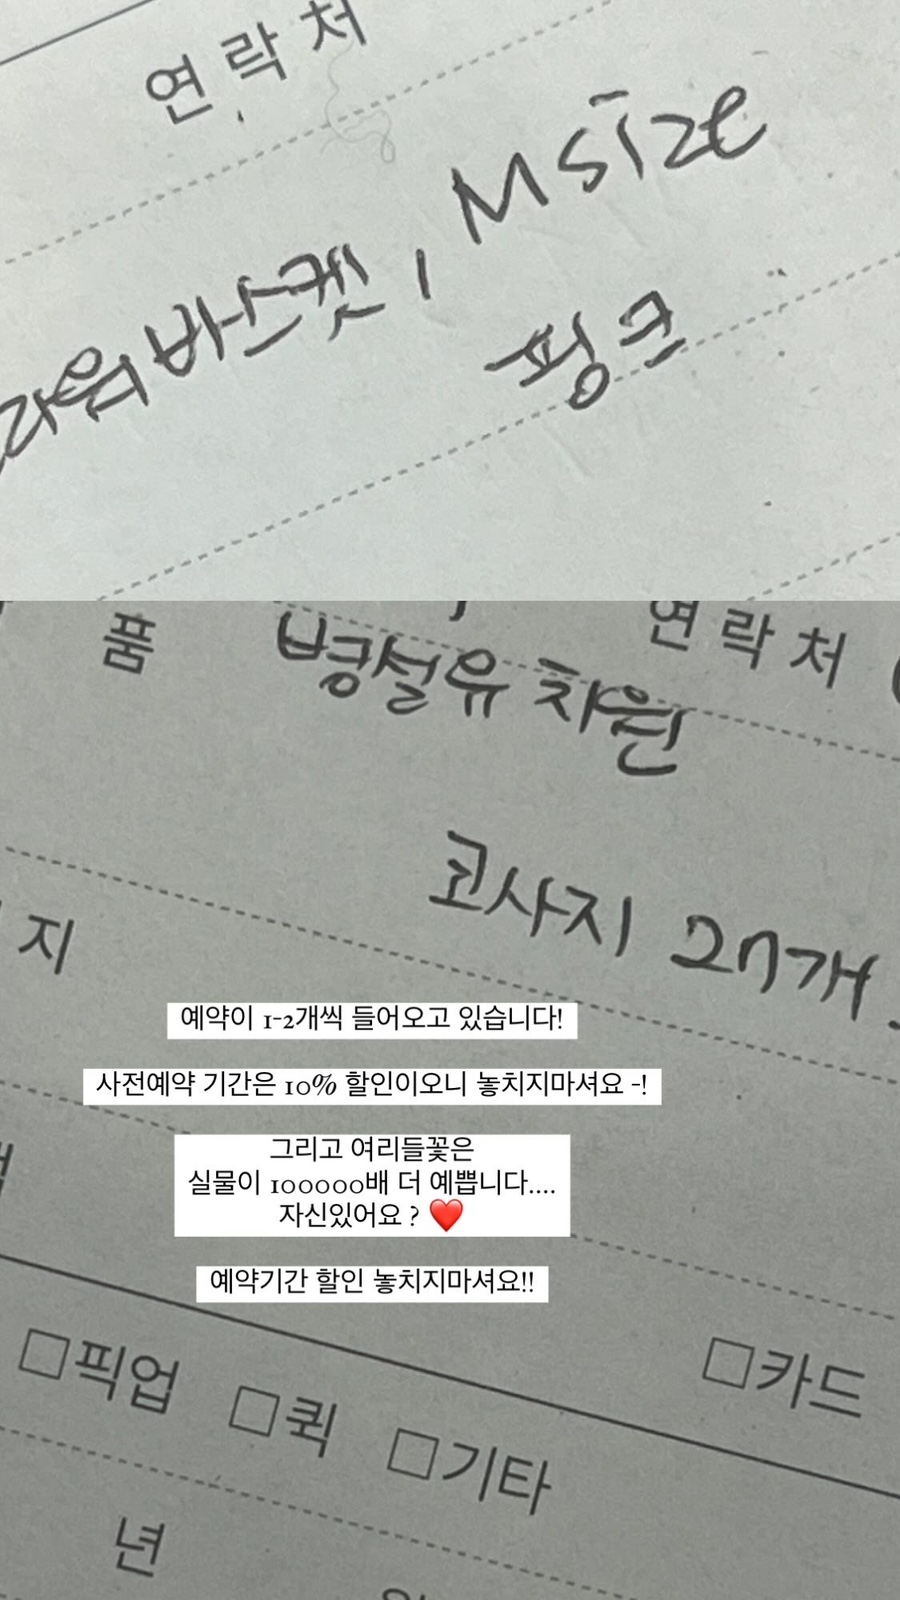 연락처
라워바스켓, M size
핑크
품
연락처
병설유치원
코사지 27개
지
예약이 1-2개씩 들어오고 있습니다!
사전예약 기간은 10% 할인이오니 놓치지마셔요 -!
그리고 여리들꽃은
실물이 100000배 더 예쁩니다....
자신있어요 ? ❤️
예약기간 할인 놓치지마셔요!!
□카드
□픽업 □퀵 □기타
년